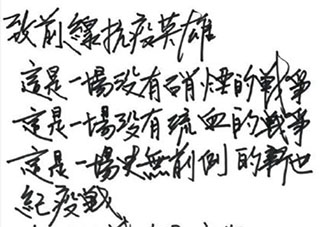 致前線抗疫英雄
這是一場没有硝煙的戰爭
這是一場没有流血的戰爭
這是一場史無前例的世
紀疫戰